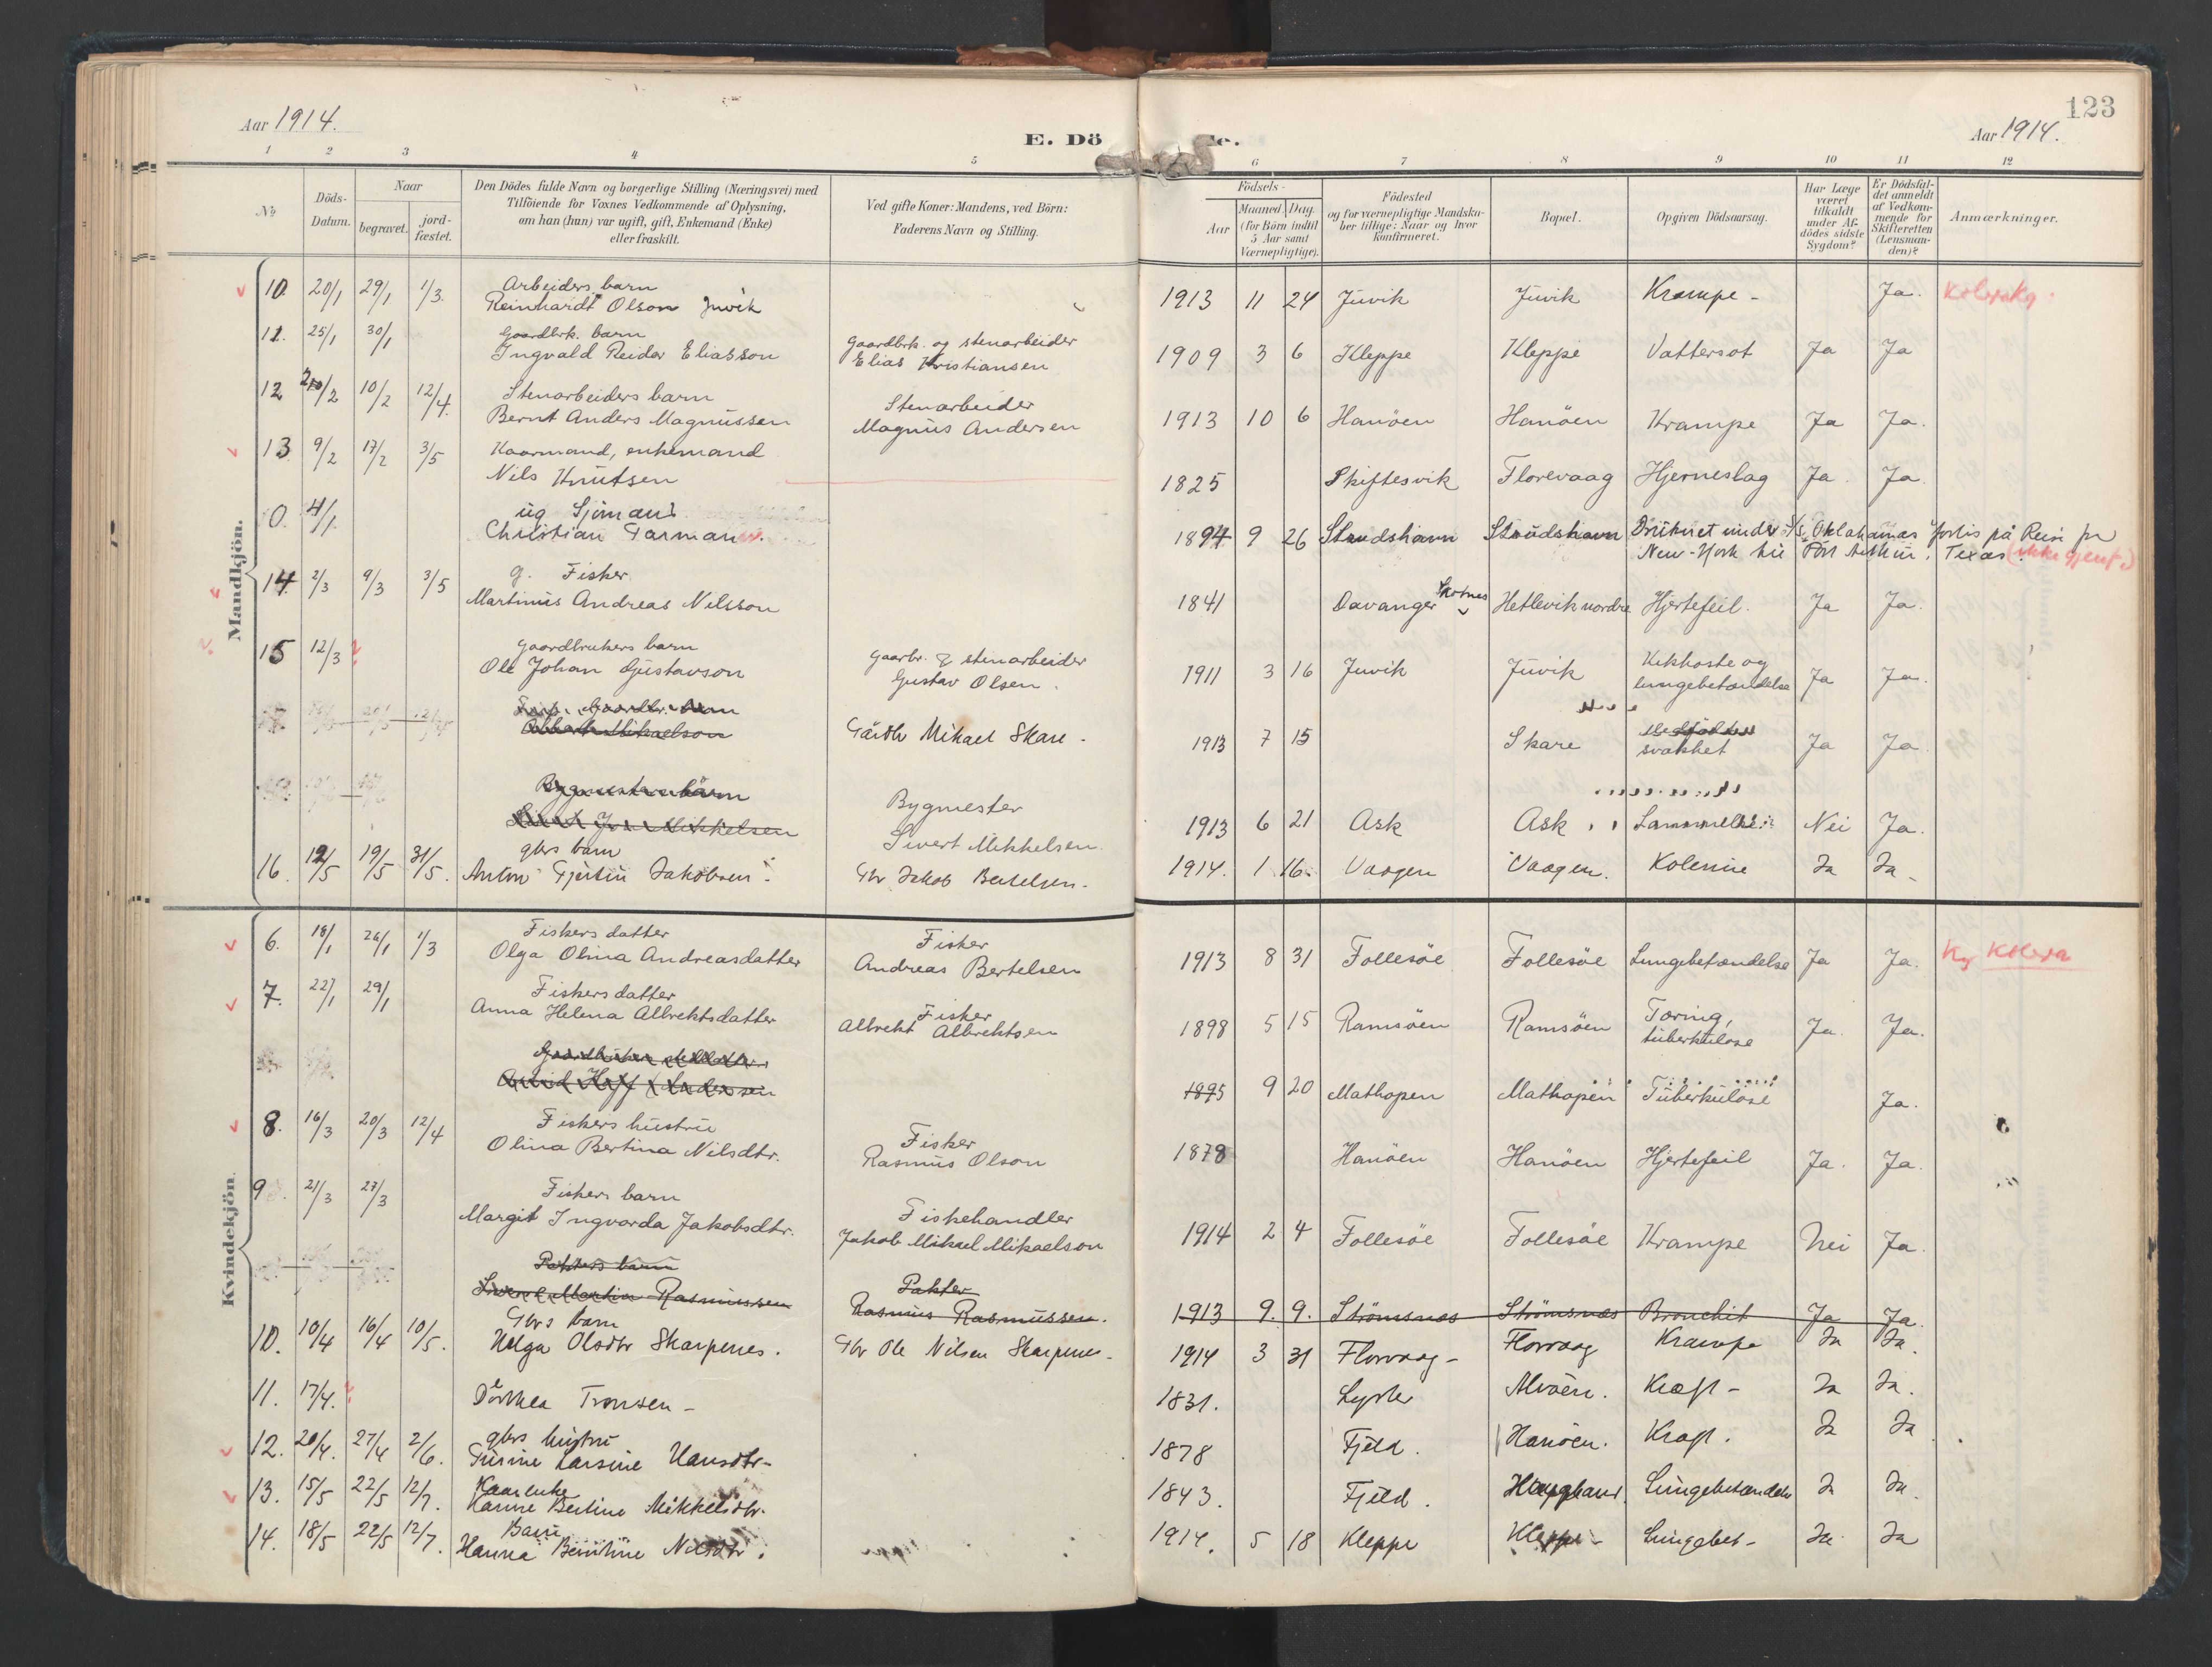 123
Aar 1914.
E. Dö de.
Aar 1914.
1 2 3 4 5 6 7 8 9 10 11 12
No.
Döds-Datum.
Naar
begravet.
jord-fæstet.
Den Dödes fulde Navn og borgerlige Stilling (Næringsvei) med
Tilföiende for Voxnes Vedkommende af Oplysning,
om han (hun) var ugift, gift, Enkemand (Enke)
eller fraskilt.
Ved gifte Koner: Mandens, ved Börn:
Faderens Navn og Stilling.
Födsels-
Aar
Maaned. Dag.
(for Börn indtil
5 Aar samt
Værnepligtige).
Födested
og for værnepligtige Mandska-
ber tillige: Naar og hvor
konfirmeret.
Bopæl.
Opgiven Dödsaarsag.
Har Læge
været
tilkaldt
under Af-
dödes sidste
Sygdom?
Er Dödsfal-
det anmeldt
af Vedkom-
mende for
Skifteretten
(Lensman-
den)?
Anmærkninger.
Mandkjön.
10. 20/1 29/1 1/3. Arbeiders barn
Reinhardt Olson Juvik 1913 11 24 Juvik Juvik Krampe - Ja.
11. 25/1 30/1 Gaardbrk. barn Gaardbrk. og stenarbeider
Ingvald Reidar Eliasson Elias Kristiansen 1909 3 6 Kleppe Kleppe Vattersot Ja Ja
12 10/2 12/4. Stenarbeiders barn Stenarbeider
Bernt Anders Magnussen Magnus Andersen 1913 10 6 Hanöen Hanöen Krampe Ja Ja.
13 9/2 17/2 3/5 Kaarmand, enkemand
Nils Knutsen 1825 Skiftesvik Florevaag Hjerneslag Ja. Ja.
0. 4/1. ug Sjömand
Christian Tarman 1894 9 26 Strudshavn Strudshavn Druknet under S/S Oklahamas forlis på Reise fra
New-York til Port Arthur, Texas (ikke gjenf.)
14 2/3 9/3 3/5 g. Fisker
Martinus Andreas Nilsson 1841 Davanger Hetlevik nordre Hjertefeil. Ja Ja.
15 12/3 ? Gaardbrukers barn Gaarbr. & stenarbeider
Ole Johan Gustavson Gustav Olsen. 1911 3 16 Juvik Juvik Kikhoste og
lungebetændelse Ja Ja.
Mikaelson Gårdbr Mikael Skare - 1913 7 15 Skare
svakhet Ja Ja
Bygmester
Mikkelsen Sivert Mikkelsen 1913 6 21 Ask Ask Nei Ja.
16. 12/5 19/5 31/5. gbrs barn
Anton Jakobsen. Gbr Jakob Bertelsen. 1914. 1 16. Vaagen Vaagen. Kolerine Ja Ja
Kvindekjön.
6. 18/1 26/1 1/3 Fiskers datter Fisker
Olga Olina Andreasdatter Andreas Bertelsen 1913 8 31 Follesöe Follesöe Lungebetændelse Ja Ja.
7. 22/1 29/1 Fiskers datter Fisker
Anna Helena Albrektsdatter Albrekt Albrektsen 1898 5 15 Ramsöen Ramsöen Tæring,
tuberkulose Ja. Ja.
Astrid Andersen 1895 9 20 Mathopen Mathopen Tuberkulose Ja.
8. 16/3 20/3 12/4 Fiskers hustru Fisker
Olina Bertina Nilsdtr. Rasmus Olson 1878 Hanöen Hanöen Hjertefeil Ja. Ja.
9 21/3 27/3 Fiskers barn Fiskehandler
Margit Ingvarda Jakobsdtr. Jakob Mikael Mikaelson 1914 2 4 Follesöe Follesöe Krampe Nei Ja.
Pakters barn Pakter
Martin Rasmussen Rasmus Rasmussen. 1913 9. 9. Strömsnæs Strömsnæs Bronchit Ja Ja.
10. 10/4 16/4 10/5. Gbrs barn
Helga Olsdtr Skarpenes. Gbr Ole Nilsen Skarpenes. 1914 3 31 Florvaag - Florvaag Krampe Ja Ja.
11. 17/4. ? Dorthea Tronsen - 1831. Lyster Alvöen. Kræft - Ja Ja.
12. 20/4. 27/4 2/6. gbrs hustru
Larsine Hansdtr - 1878 Fjeld. Hanöen. Kræft. Ja Ja
13. 15/5 22/5 12/7. Kaarenke
Hanne Bertine Mikkelsdtr. 1843. Fjeld. Lungebetændelse Ja Ja.
14. 18/5 22/5 12/7. Barn
Hanna Nilsdtr. 1914. 5 18 Kleppe Kleppe - Lungebet - Ja. Ja